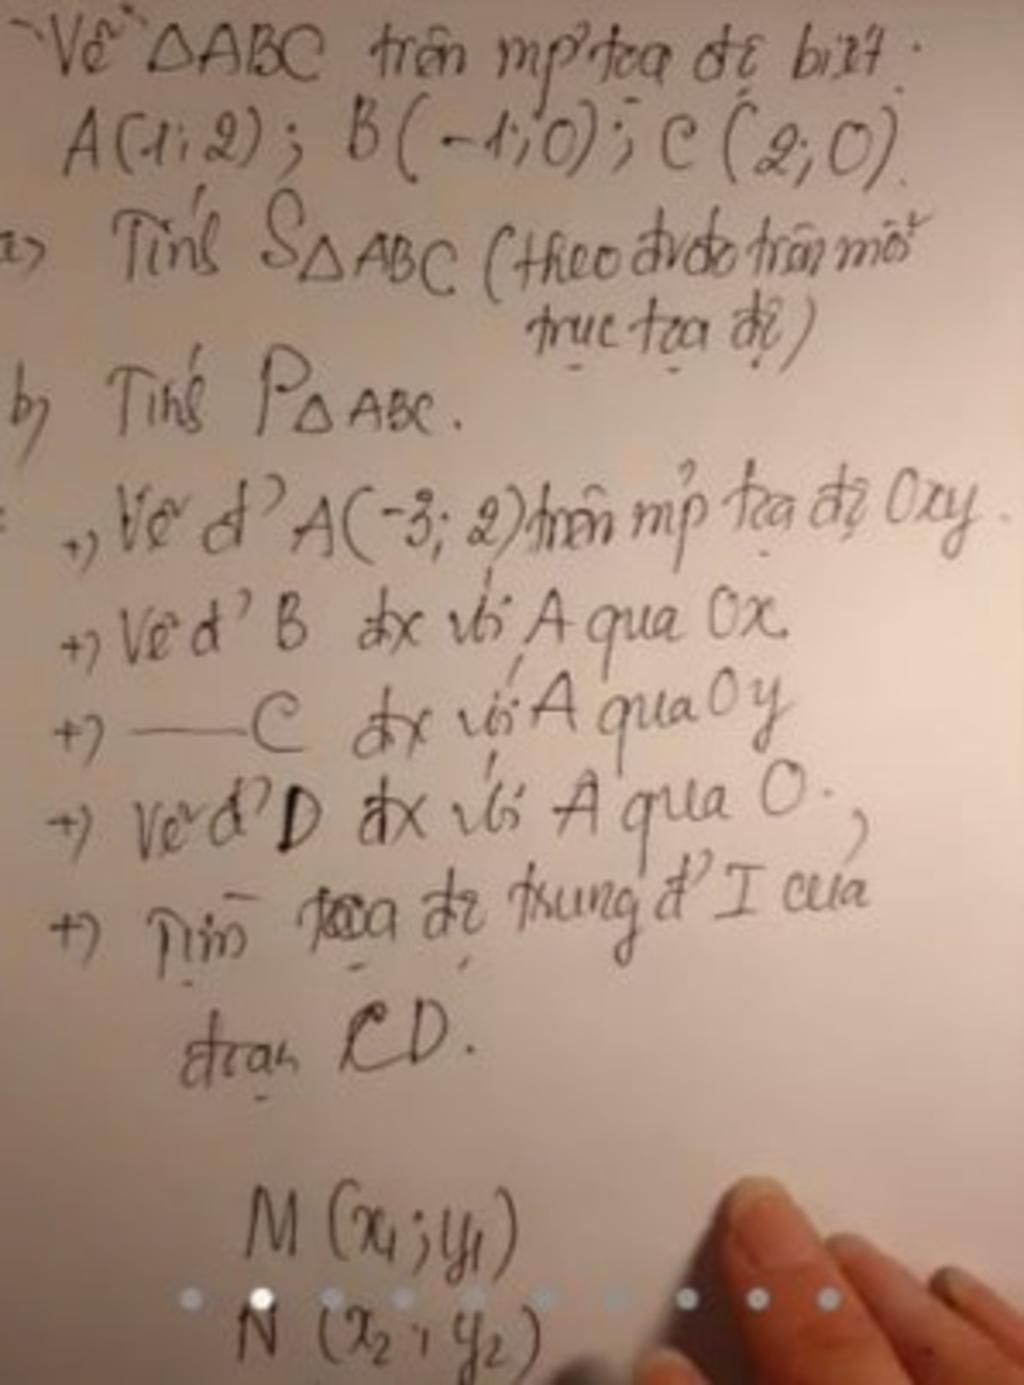 Vẽ △ABC trên mp tọa độ biết:
A(1; 2); B(-1; 0); C(2; 0).
a) Tính S△ABC (theo đvđo trên mỗi
trục tọa độ)
b) Tính P△ABC.
+) Vẽ đ' A(-3; 2) trên mp tọa độ Oxy.
+) Vẽ đ' B đx với A qua Ox.
+) — C đx với A qua Oy
+) Vẽ đ' D đx với A qua O.
+) Tìm tọa độ trung đ' I của
đoạn CD.
M (x₁; y₁)
N (x₂; y₂)